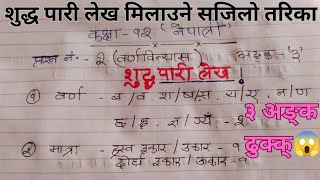 शुद्ध पारी लेख मिलाउने सजिलो तरिका
कक्षा-१२ 'नेपाली'
प्रश्न नं.- २ (वर्णविन्यास) अङ्क-'३'
शुद्ध पारी लेख
१) वर्ण - ब/व श/ष/स, य/ए, न/ण
छ/क्ष, ज्ञ/ग्यँ - १
२) मात्रा - ह्रस्व इकार/उकार - १
दीर्घ ईकार/ऊकार - १
३ अङ्क
ढुक्क